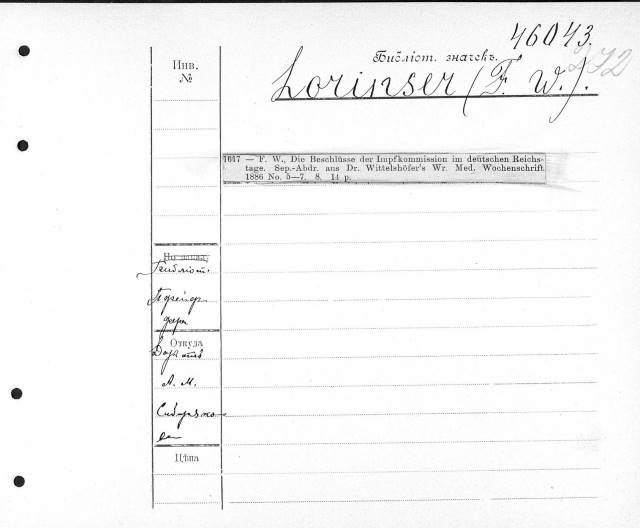 46043.
272
Библіот. значекъ.
Инв.
№
Lorinser (F. W.).
1617 — F. W., Die Beschlüsse der Impfkommission im deutschen Reichs-
tage. Sep.-Abdr. aus Dr. Wittelshöfer's Wr. Med. Wochenschrift
1886 No. 5—7. 8. 14 p.
Библіот.
Откуда
А. М.
Сибиряко-
ва
Цѣна